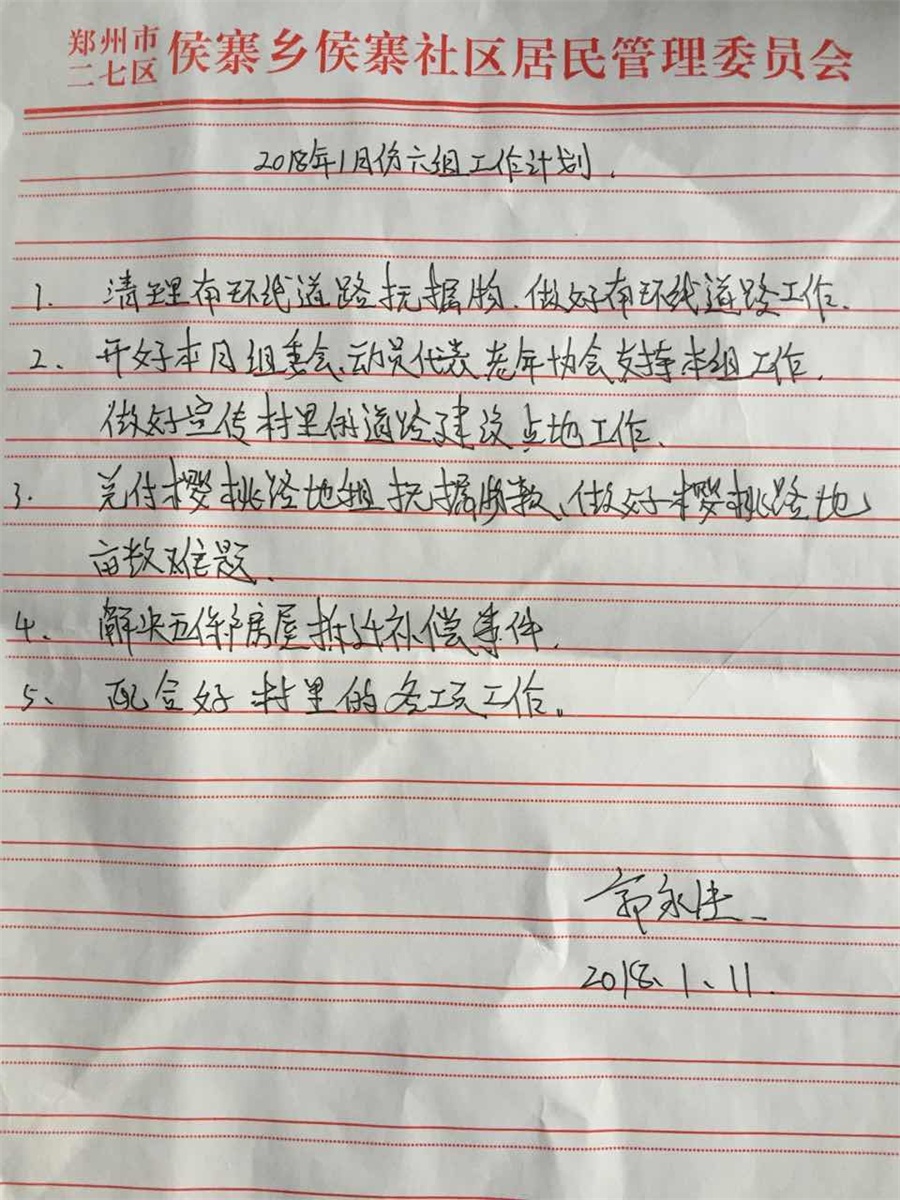 郑州市
二七区
侯寨乡侯寨社区居民管理委员会
2018年1月份六组工作计划.
1. 清理南环线道路抚掘物、做好南环线道路工作.
2、开好本月组委会、动员代表老年协会支持本组工作.
做好宣传村里的道路建设占地工作、
3. 兑付樱桃路地租抚掘物款、做好樱桃路地
亩数难题、
4、解决五保户房屋拆迁补偿事件.
5、配合好村里的各项工作。
郭永
2018、1、11.